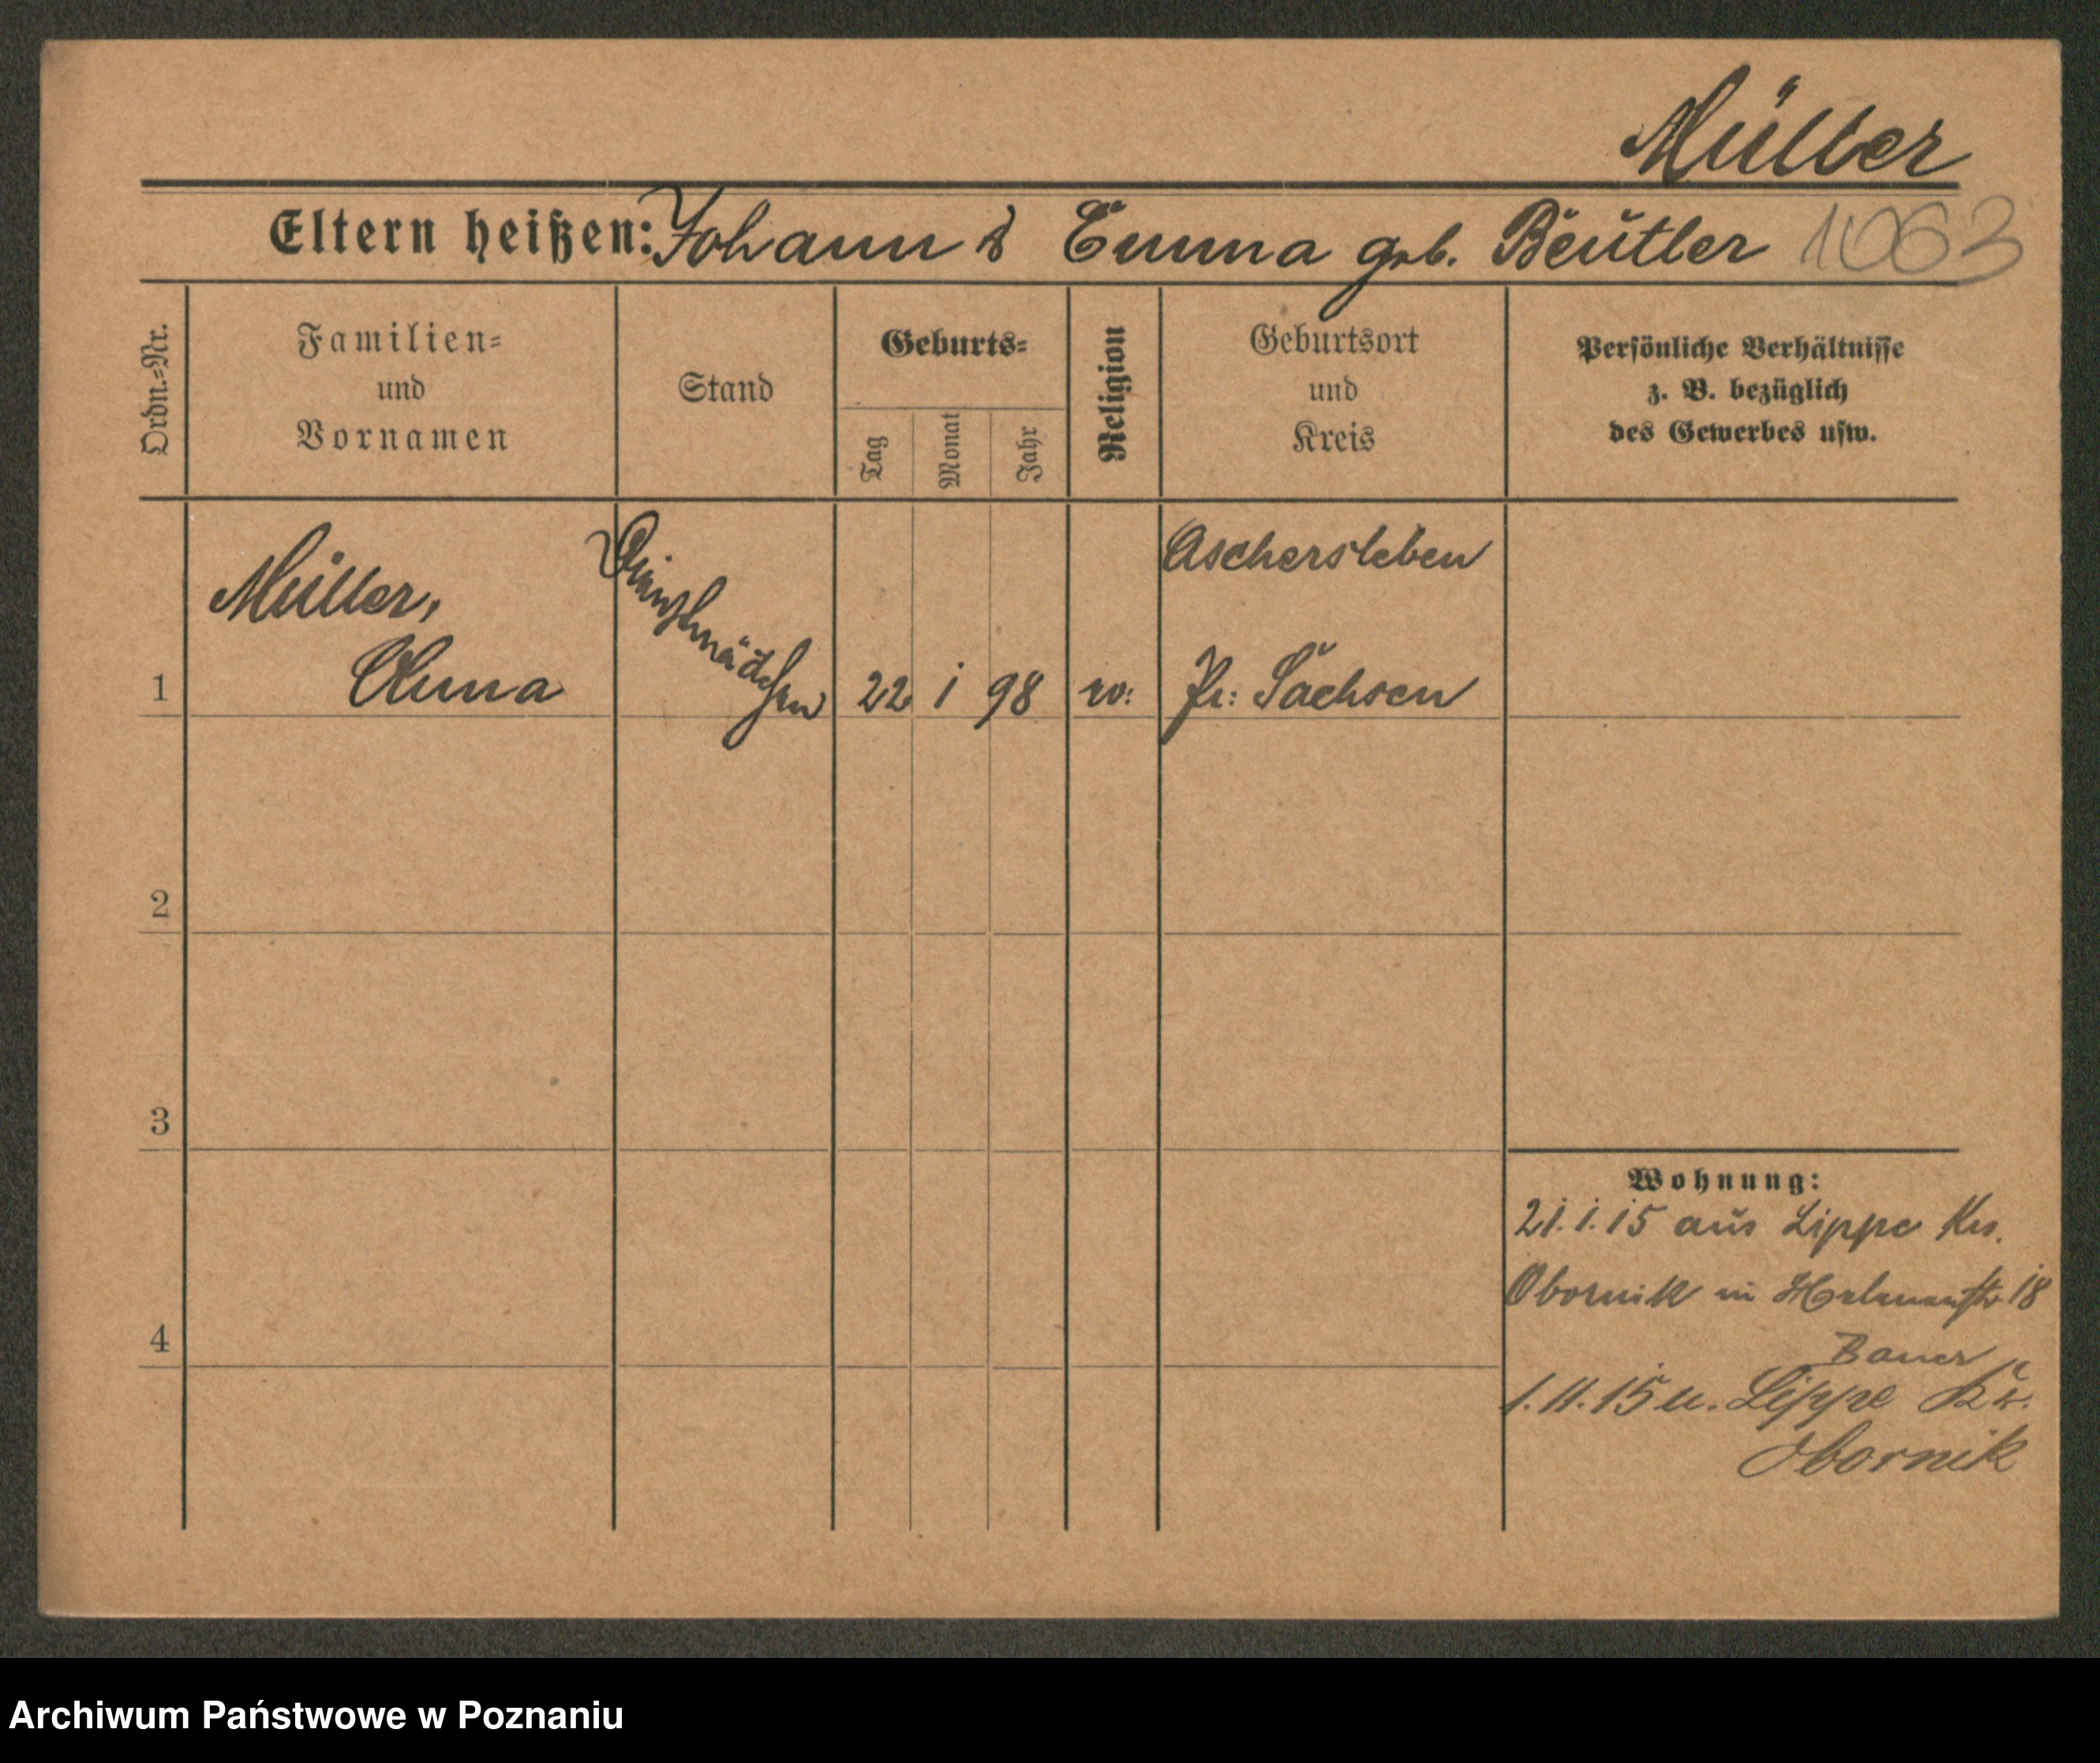 Müller
Eltern heißen: Johann & Emma geb. Beutler 1063
Ordn.=Nr.
Familien=
und
Vornamen
Stand
Geburts=
Tag
Monat
Jahr
Religion
Geburtsort
und
Kreis
Persönliche Verhältnisse
z. B. bezüglich
des Gewerbes usw.
1
Müller,
Anna
Dienstmädchen
22 1 98
Aschersleben
Pr: Sachsen
2
3
4
Wohnung:
21.1.15 aus Lippe Krs.
Obornik in 18
Bauer
1.11.15 u. Lippe Kr.
Obornik
Archiwum Państwowe w Poznaniu